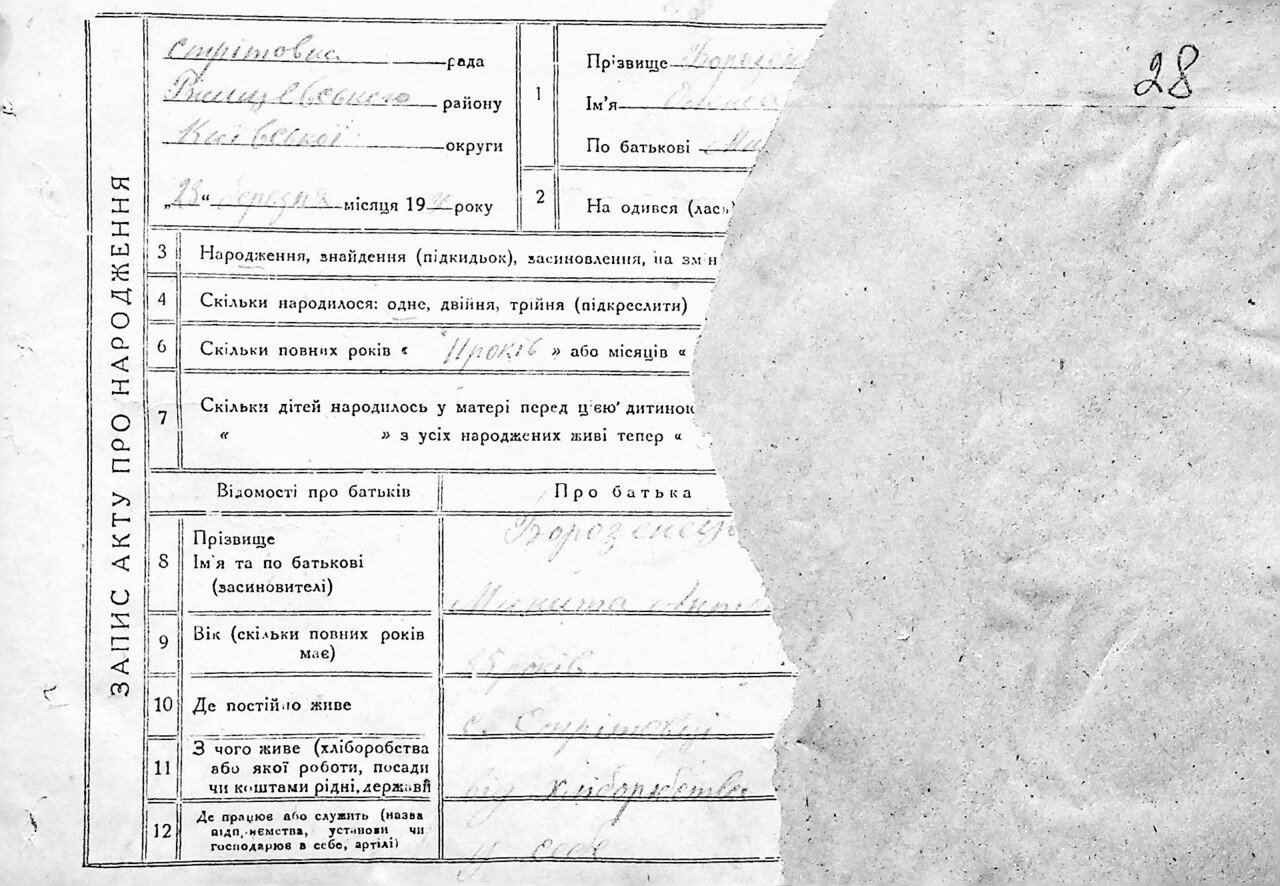 28
ЗАПИС АКТУ ПРО НАРОДЖЕННЯ
стрітовка рада
Ржищевського району
Київської округи
„23“ березня місяця 19 року
1 Прізвище
Ім'я
По батькові
2 На одився (лась)
3 Народження, знайдення (підкидьок), засиновлення, на зм н
4 Скільки народилося: одне, двійня, трійня (підкреслити)
6 Скільки повних років « років » або місяців «
7 Скільки дітей народилось у матері перед ц'єю' дитиною
« » з усіх народжених живі тепер «
Відомості про батьків Про батька
8 Прізвище
Ім'я та по батькові
(засиновителі)
Борозенець
Микита
9 Вік (скільки повних років
має)
років
10 Де постійно живе с. Стрітовці
11 З чого живе (хліборобства
або якої роботи, посади
чи коштами рідні, держави
від хліборобства
12 Де працює або служить (назва
підп, иємства, установи чи
господарює в себе, артілі)
у себе